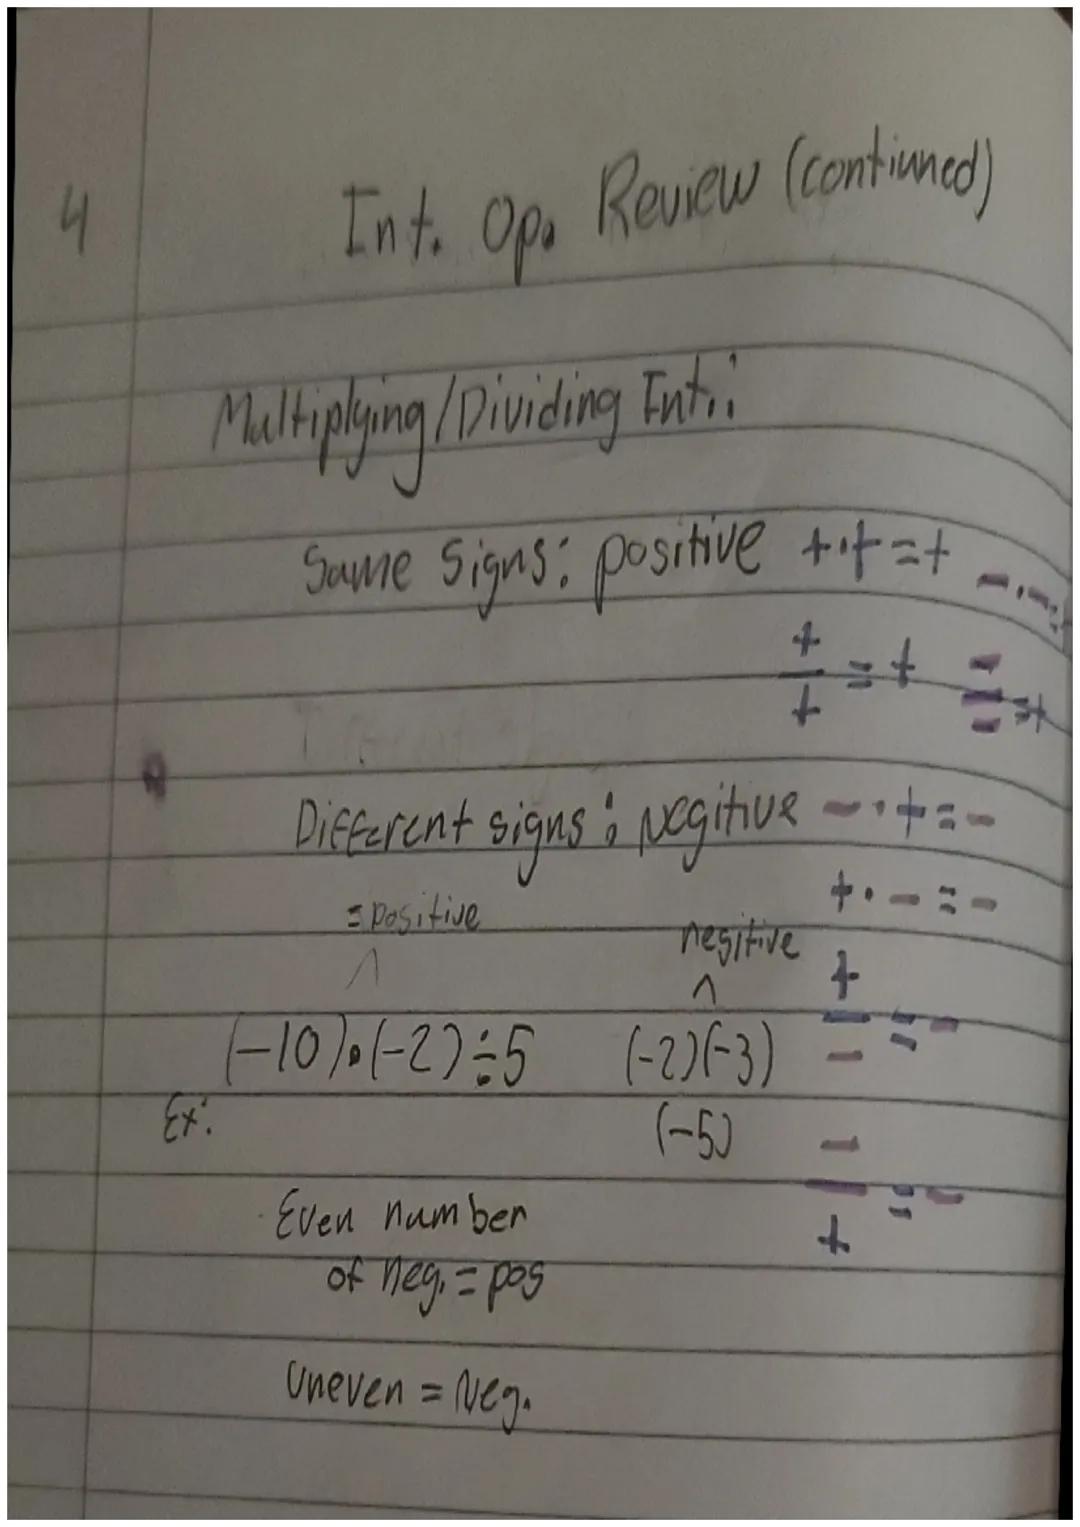 4
Int. Op. Review (contiuned)
Multiplying/Dividing Int.:
Same Signs: positive +·+=+ -·-=+
+/+ = + -/- = +
Different signs: Negitive -·+=-
+·-=-
=positive negitive
^ ^
+/- = -
(-10)·(-2)÷5 (-2)(-3)
Ex: (-5)
-/+ = -
Even number
of neg.=pos
Uneven = Neg.